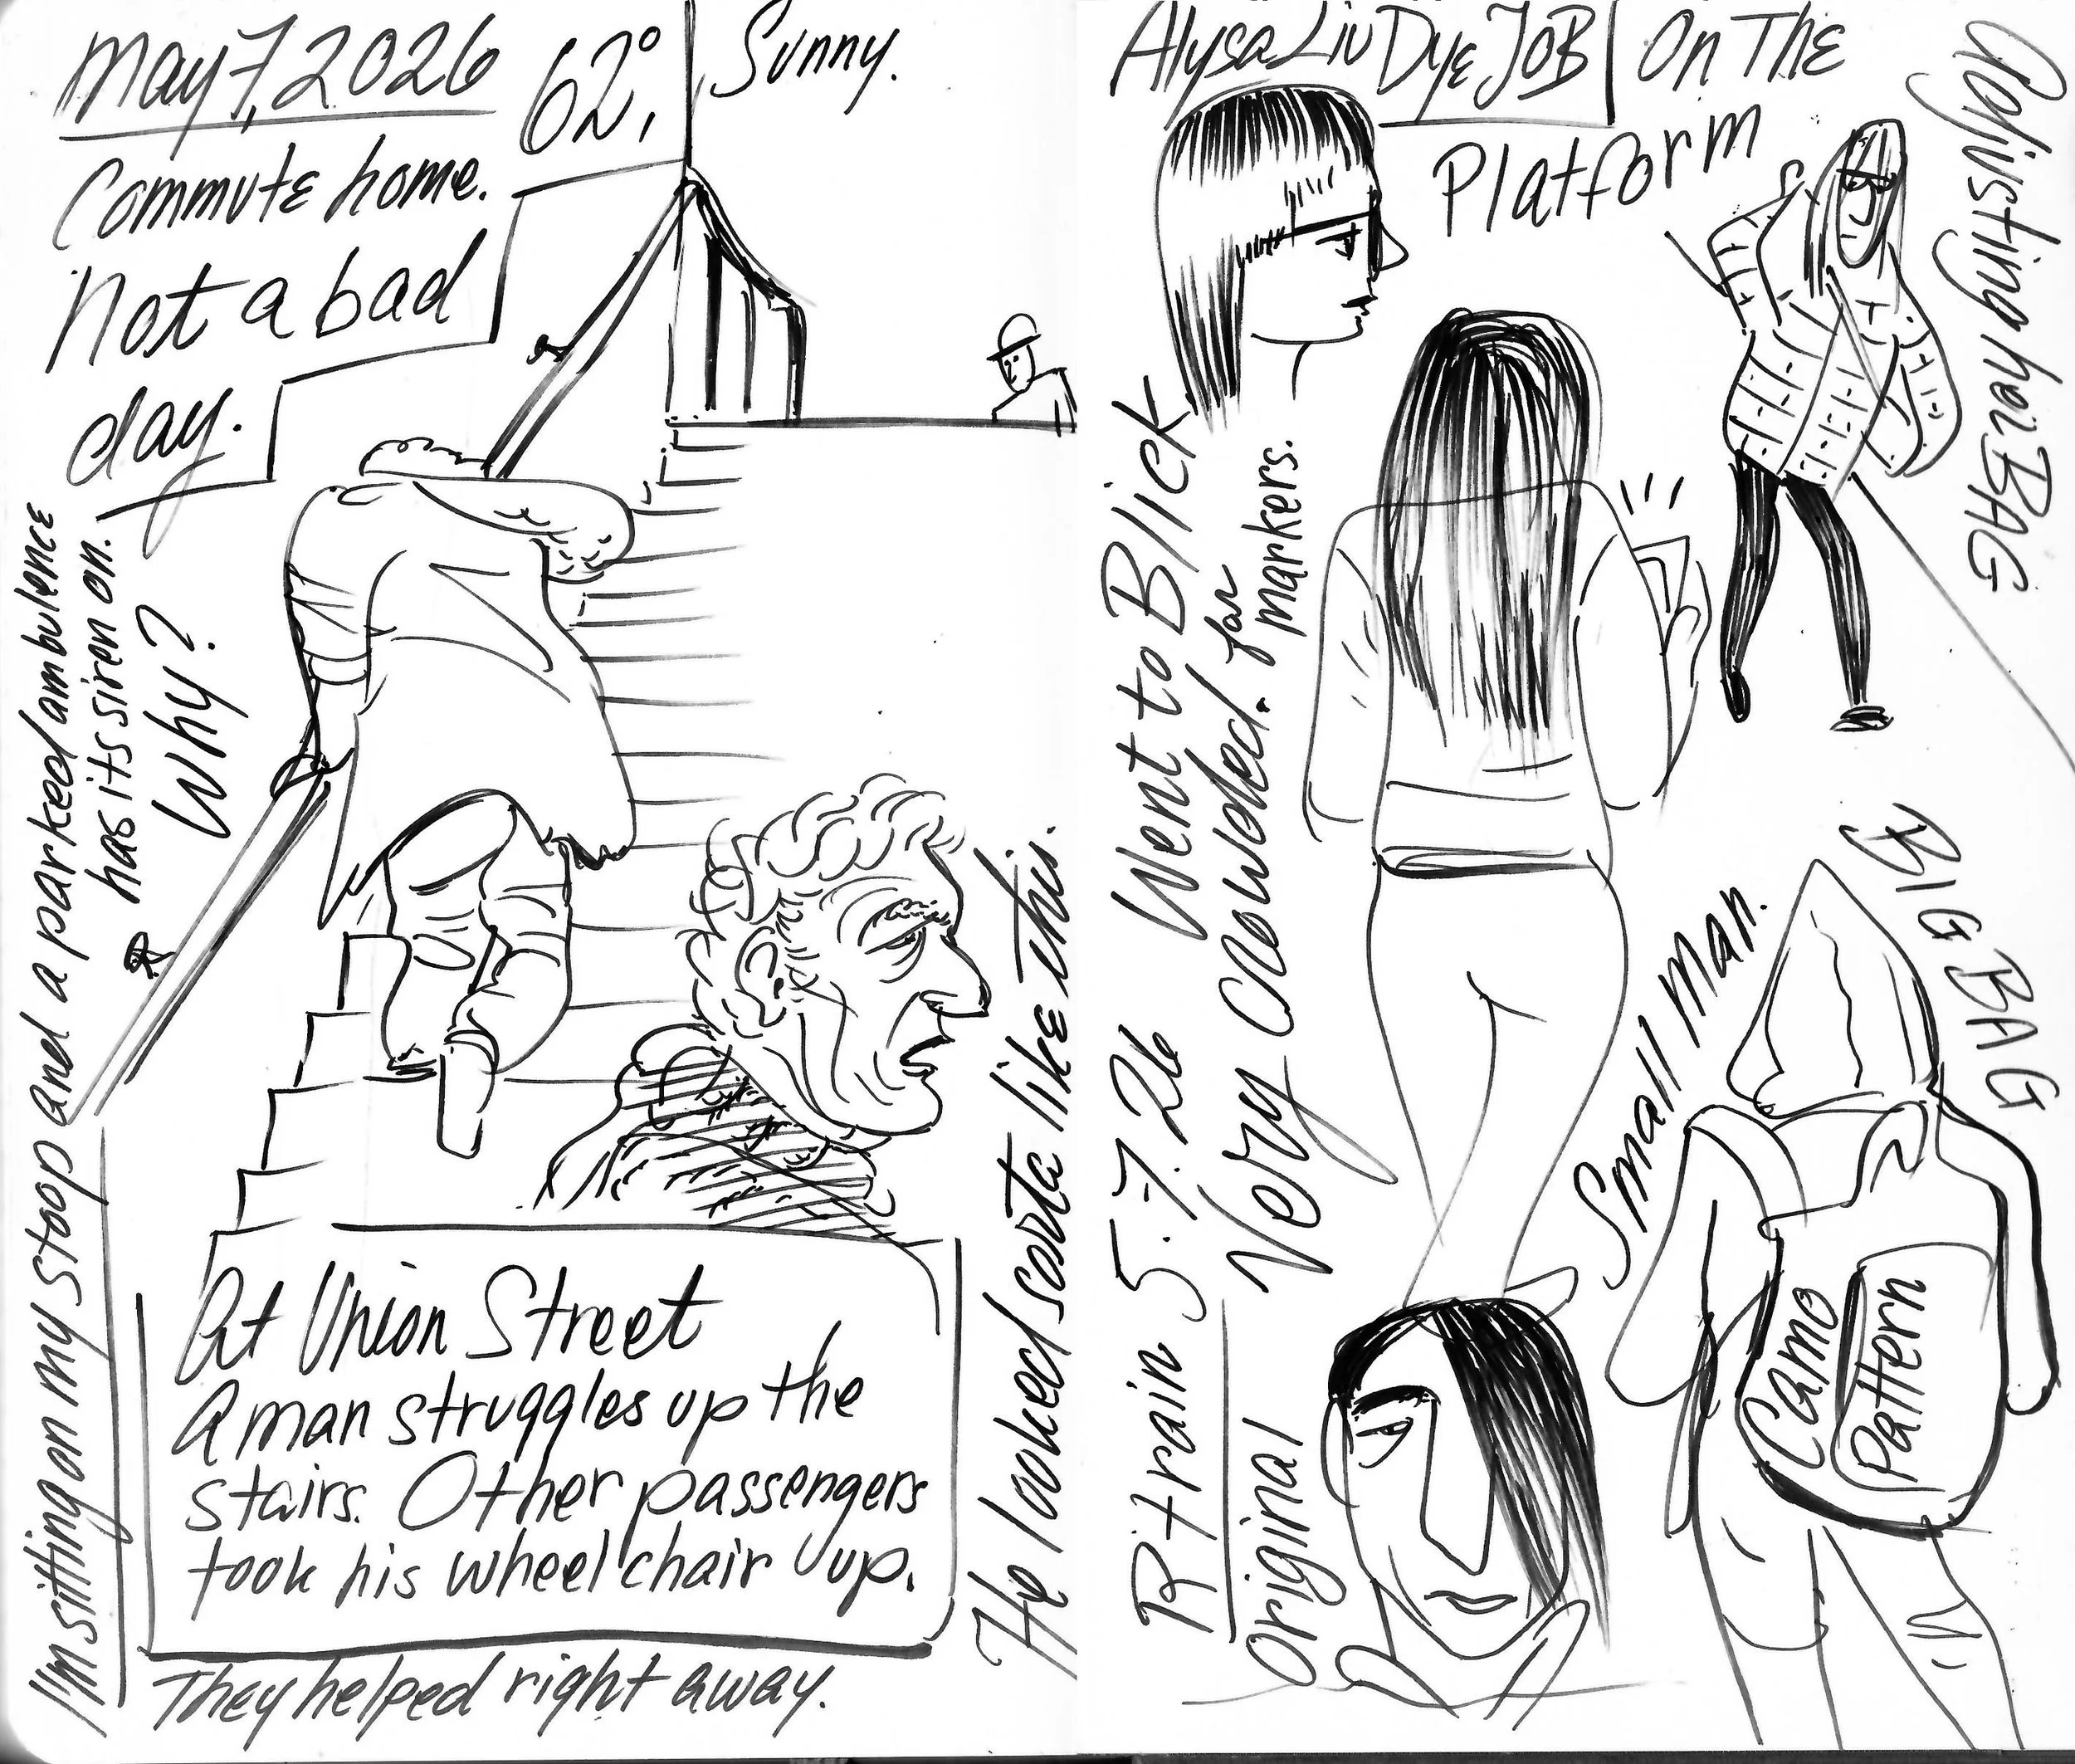 May 7, 2026
62°, Sunny.
Commute home.
Not a bad
day.
I'm sitting on my stoop and a parked ambulence
has its siren on.
Why?
At Union Street
a man struggles up the
stairs. Other passengers
took his wheel chair up.
They helped right away.
He looked sorta like this.
Alysa Liu Dye JOB
On The
Platform
Adjusting her BAG
Went to Blick
Very Crowded. for
markers.
R train 5.7.26
Original
Small Man.
BIG BAG
Camo
Pattern